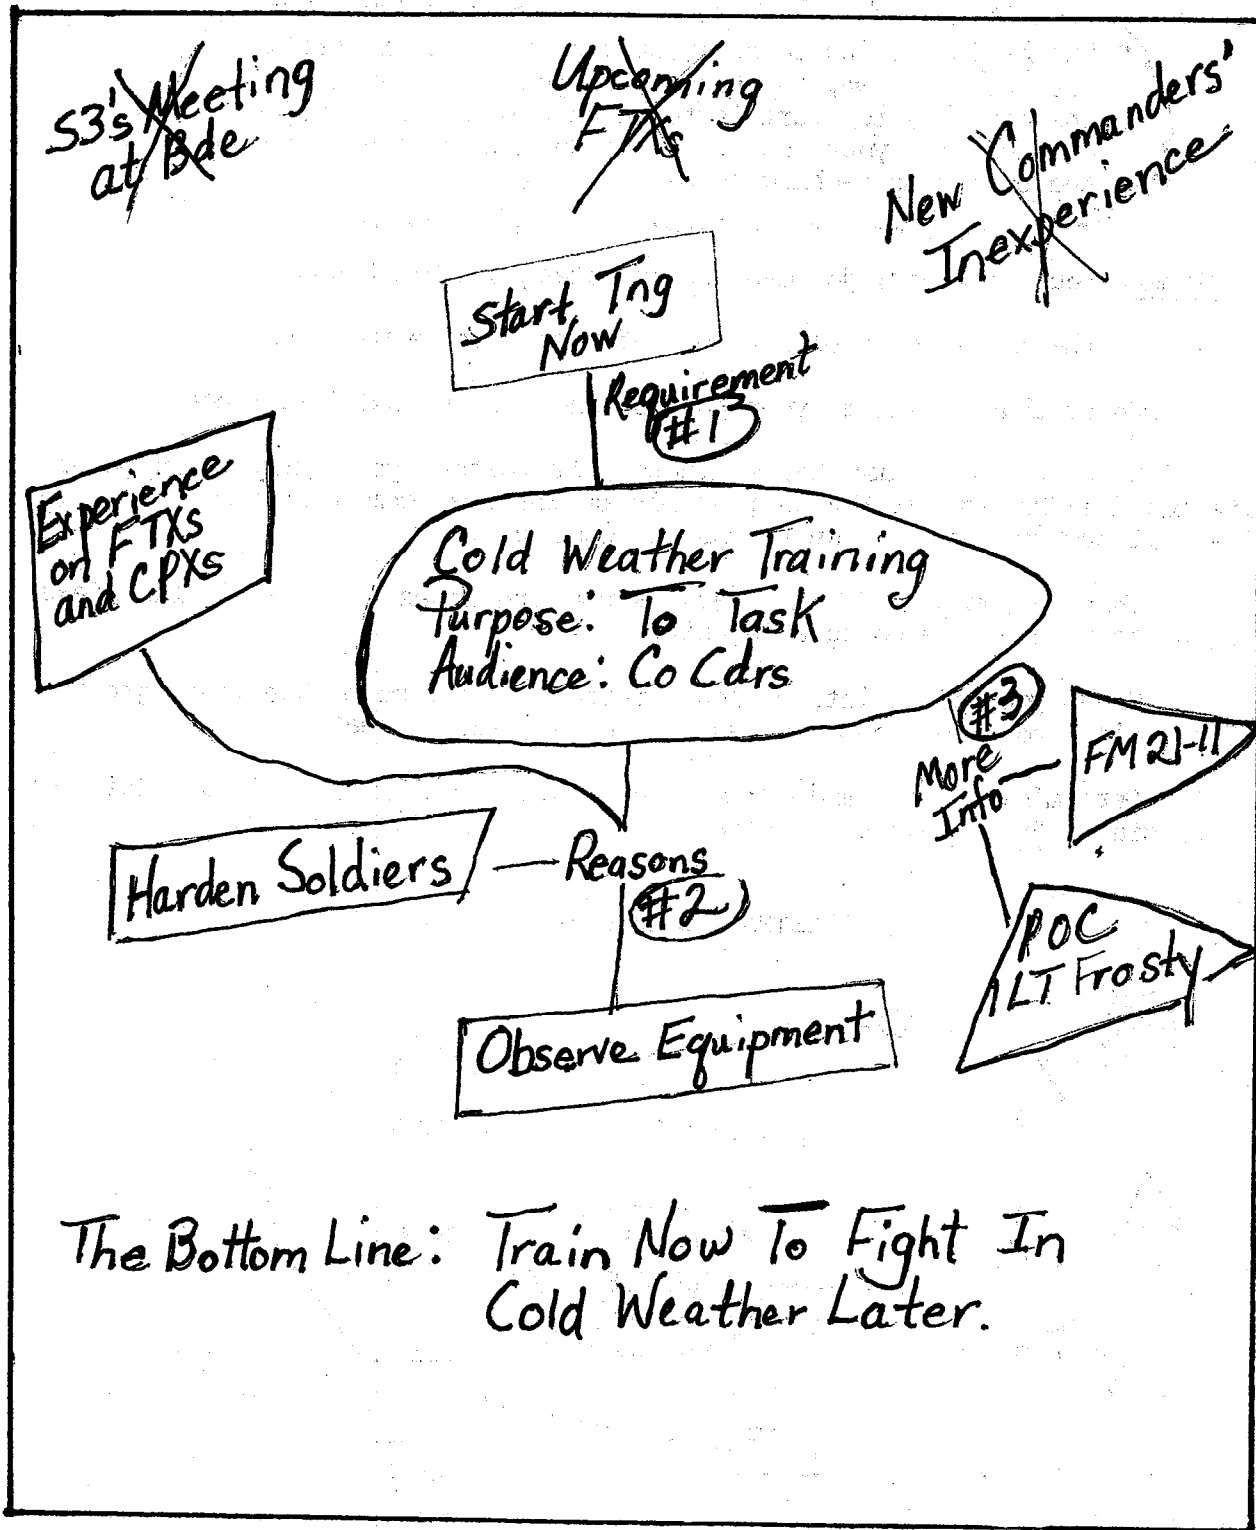 S3's Meeting
at Bde
Upcoming
FTXs
New Commanders'
Inexperience
Start Tng
Now
Requirement
#1
Experience
on FTXs
and CPXs
Cold Weather Training
Purpose: To Task
Audience: Co Cdrs
#3
More
Info
FM 21-11
Harden Soldiers
Reasons
#2
POC
1LT Frosty
Observe Equipment
The Bottom Line: Train Now To Fight In
Cold Weather Later.